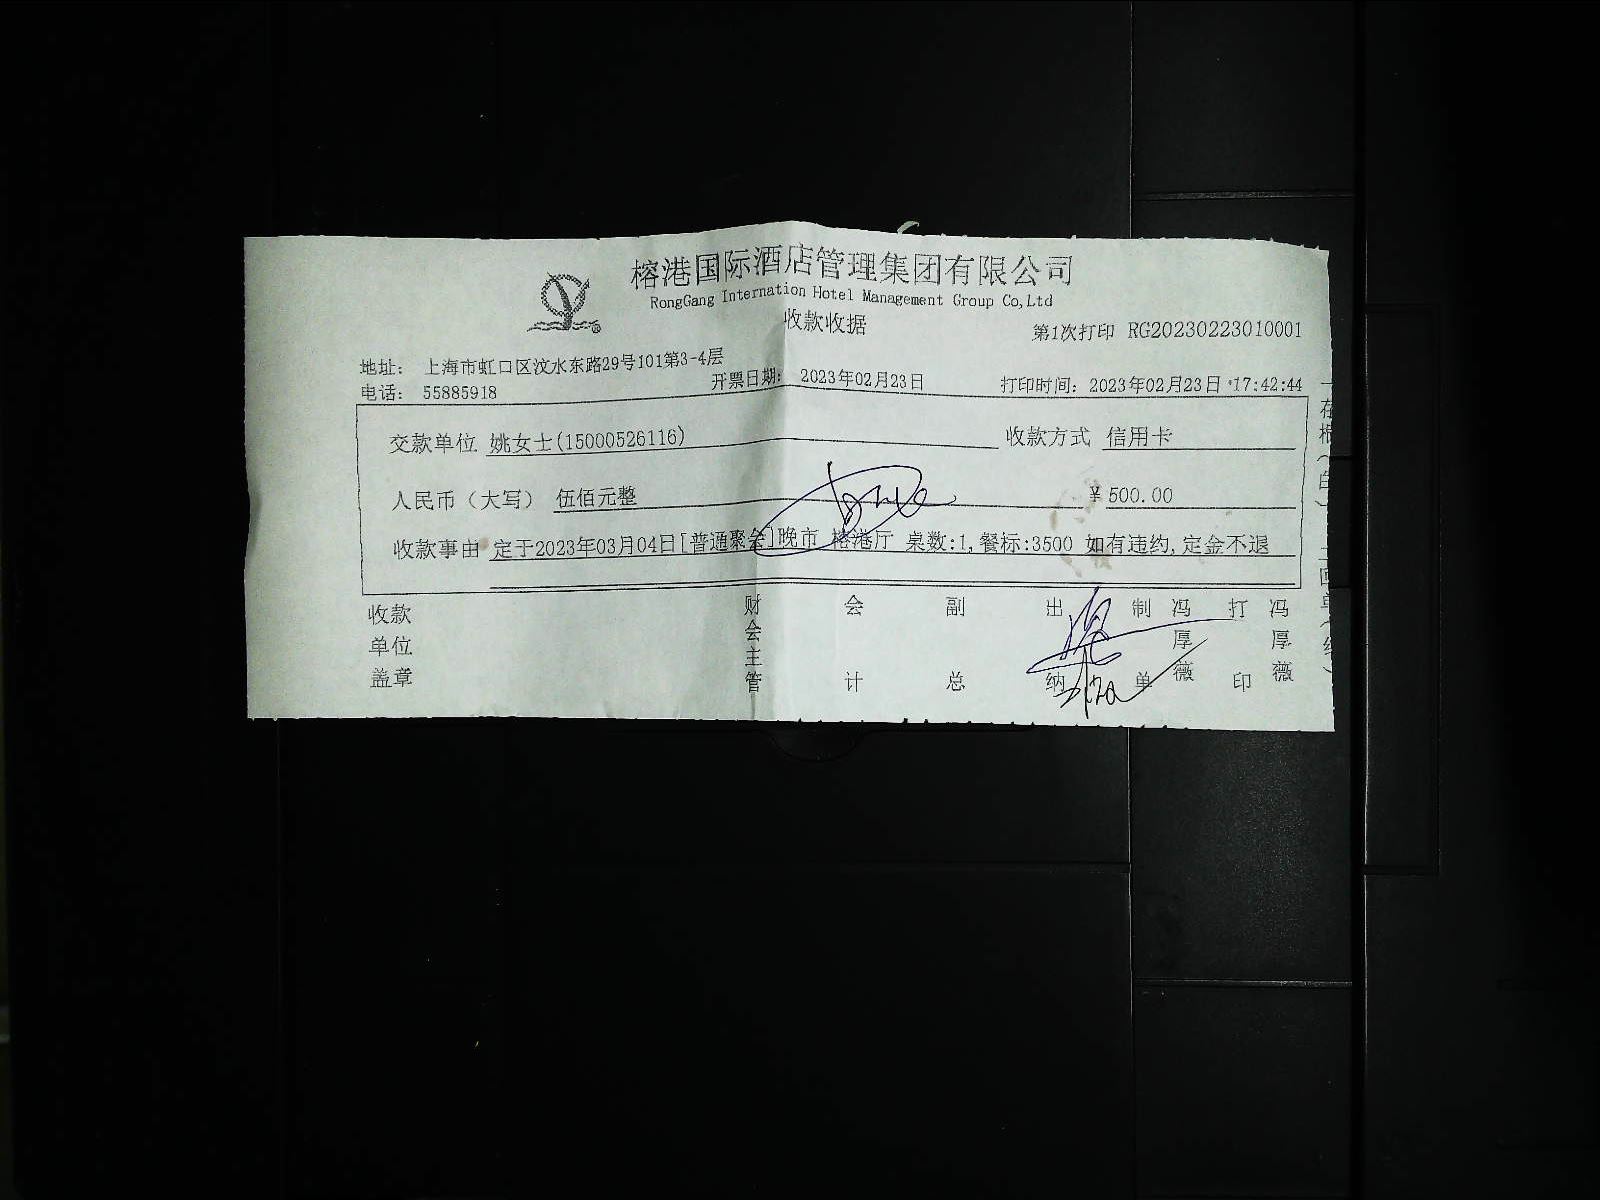 榕港国际酒店管理集团有限公司
RongGang Internation Hotel Management Group Co,Ltd
收款收据
第1次打印 RG20230223010001
地址: 上海市虹口区汶水东路29号101第3-4层
电话: 55885918 开票日期: 2023年02月23日 打印时间: 2023年02月23日 17:42:44
交款单位 姚女士(15000526116) 收款方式 信用卡
人民币（大写） 伍佰元整 ￥500.00
收款事由 定于2023年03月04日[普通聚会]晚市 榕港厅 桌数:1,餐标:3500 如有违约,定金不退
收款单位盖章 财会主管 会计 副总 出纳 制单 冯厚薇 打印 冯厚薇
一存根(白) 二回单(红)